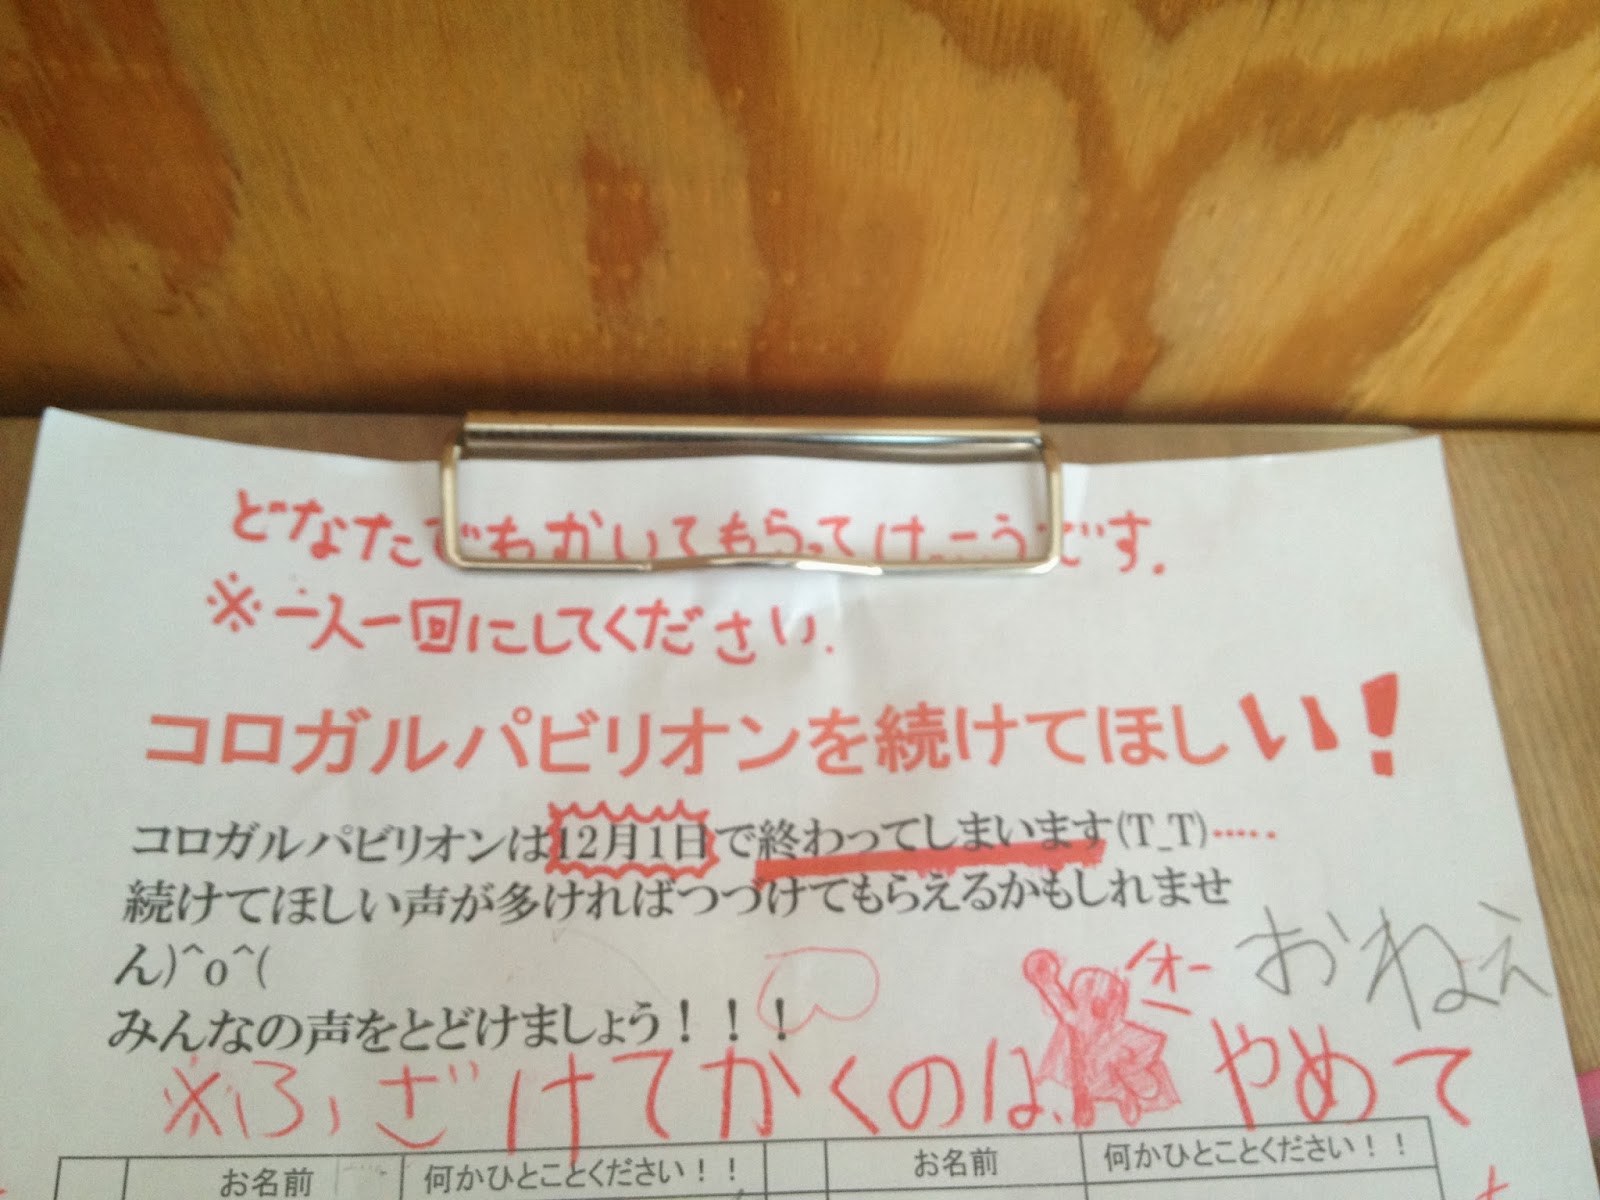 どなたでもかいてもらってけっこうです.
※一人一回にしてください.
コロガルパビリオンを続けてほしい!
コロガルパビリオンは12月1日で終わってしまいます(T_T)・・・・・
続けてほしい声が多ければつづけてもらえるかもしれませ
ん)^o^(
みんなの声をとどけましょう！！！
オー
おねえ
※ふざけてかくのは、やめて
お名前 何かひとことください！！ お名前 何かひとことください！！